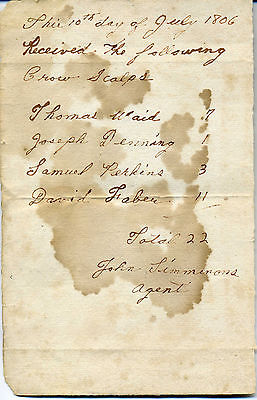 This 10th day of July 1806
Received The following
Crow Scalps
Thomas Waid 7
Joseph Denning 1
Samuel Perkins 3
David Faber 11
Total 22
John Simmirons
Agent